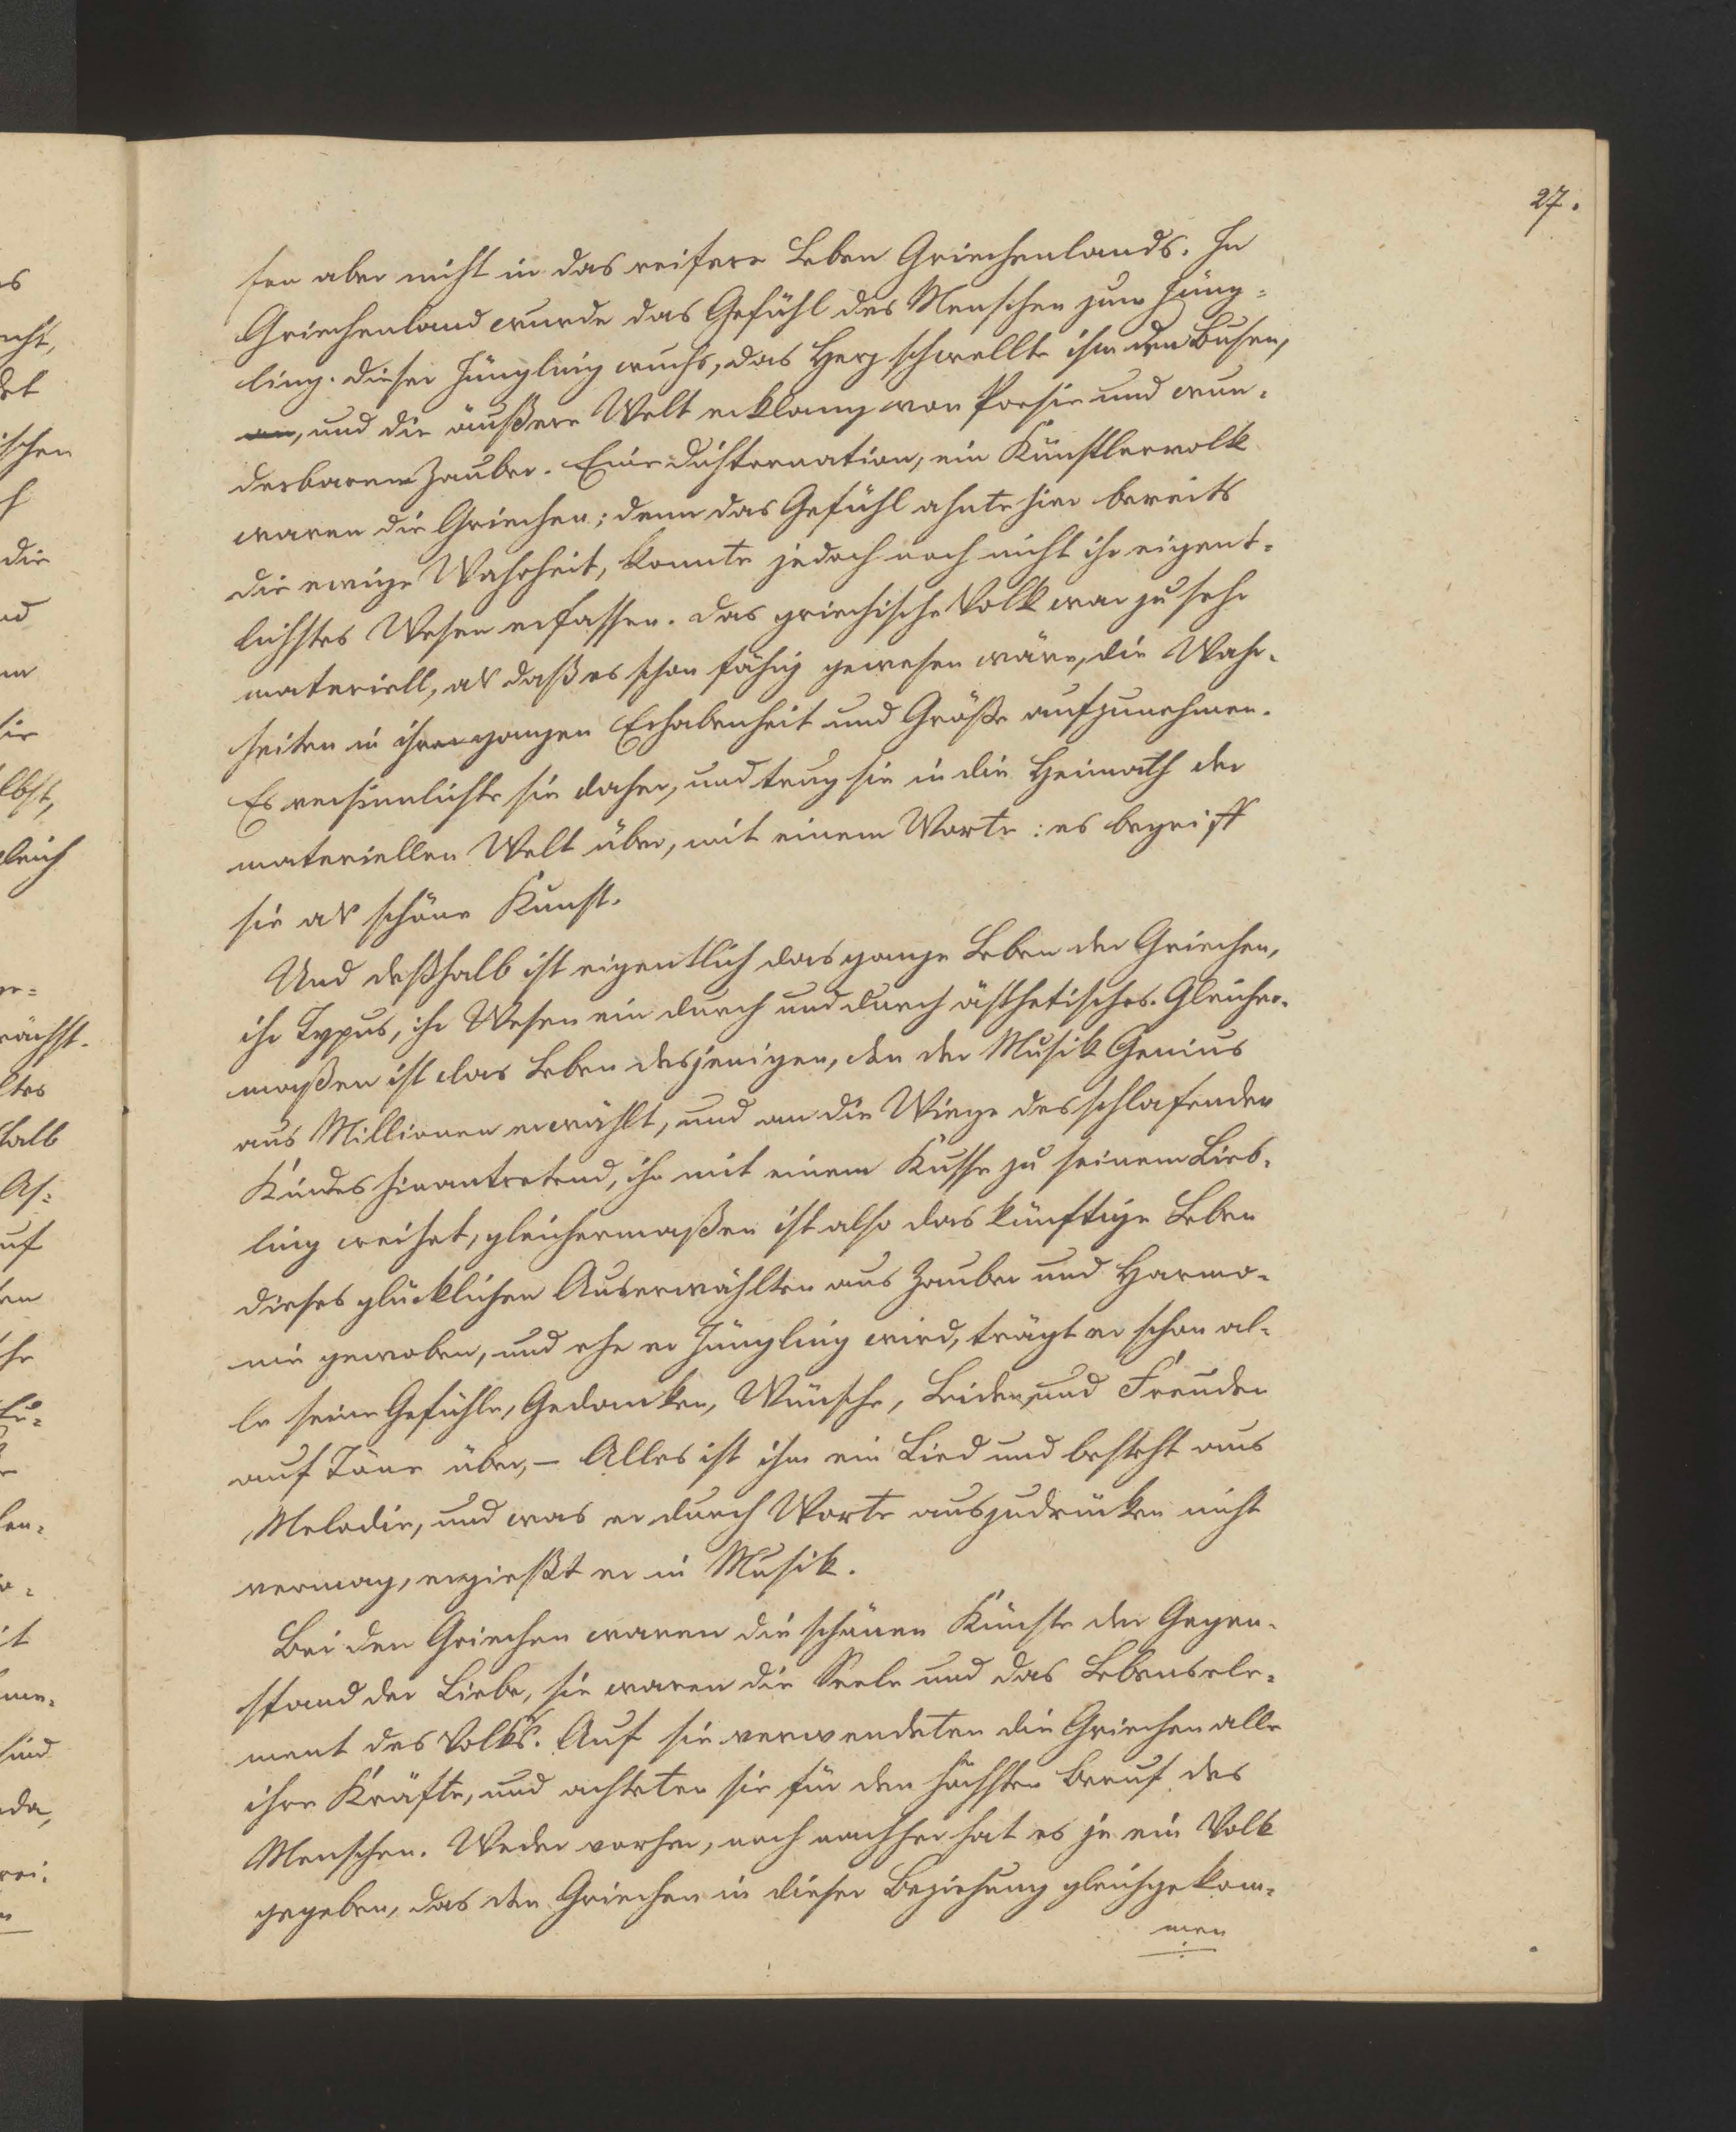 27.
ten aber nicht in das reifere Leben Griechenlands. In
Griechenland wurde das Gefühl des Menschen zum Jüng-
ling. Dieser Jüngling wuchs, das Herz schwellte ihm den Busen,
und die äußere Welt erklang von Poesie und wun-
derbarem Zauber. Eine Dichternation, ein Künstlervolk
waren die Griechen; denn das Gefühl ahnte hier bereits
die ewige Wahrheit, konnte jedoch noch nicht ihr eigent-
lichstes Wesen erfassen. Das griechische Volk war zu sehr
materiell, als daß es schon fähig gewesen wäre, die Wahr-
heiten in ihrer ganzen Erhabenheit und Größe aufzunehmen.
Es versinnlichte sie daher, und trug sie in die Heimath der
materiellen Welt über, mit einem Worte: es begriff
sie als schöne Kunst.
Und deßhalb ist eigentlich das ganze Leben der Griechen,
ihr Typus, ihr Wesen ein durch und durch ästhetisches. Gleicher-
maßen ist das Leben desjenigen, den der Musik Genius
aus Millionen erwählt, und an die Wiege des schlafenden
Kindes hinantretend, ihn mit einem Kusse zu seinem Lieb-
ling weihet, gleichermaßen ist also das künftige Leben
dieses glücklichen Auserwählten aus Zauber und Harmo-
nie gewoben, und ehe er Jüngling wird, trägt er schon al-
le seine Gefühle, Gedanken, Wünsche, Leiden und Freuden
auf Töne über, – Alles ist ihm ein Lied und besteht aus
Melodie, und was er durch Worte auszudrücken nicht
vermag, ergießt er in Musik.
Bei den Griechen waren die schönen Künste der Gegen-
stand der Liebe, sie waren die Seele und das Lebensele-
ment des Volkes. Auf sie verwendeten die Griechen alle
ihre Kräfte, und achteten sie für den höchsten Beruf des
Menschen. Weder vorher, noch nachher hat es je ein Volk
gegeben, das den Griechen in dieser Beziehung gleichgekom-
men